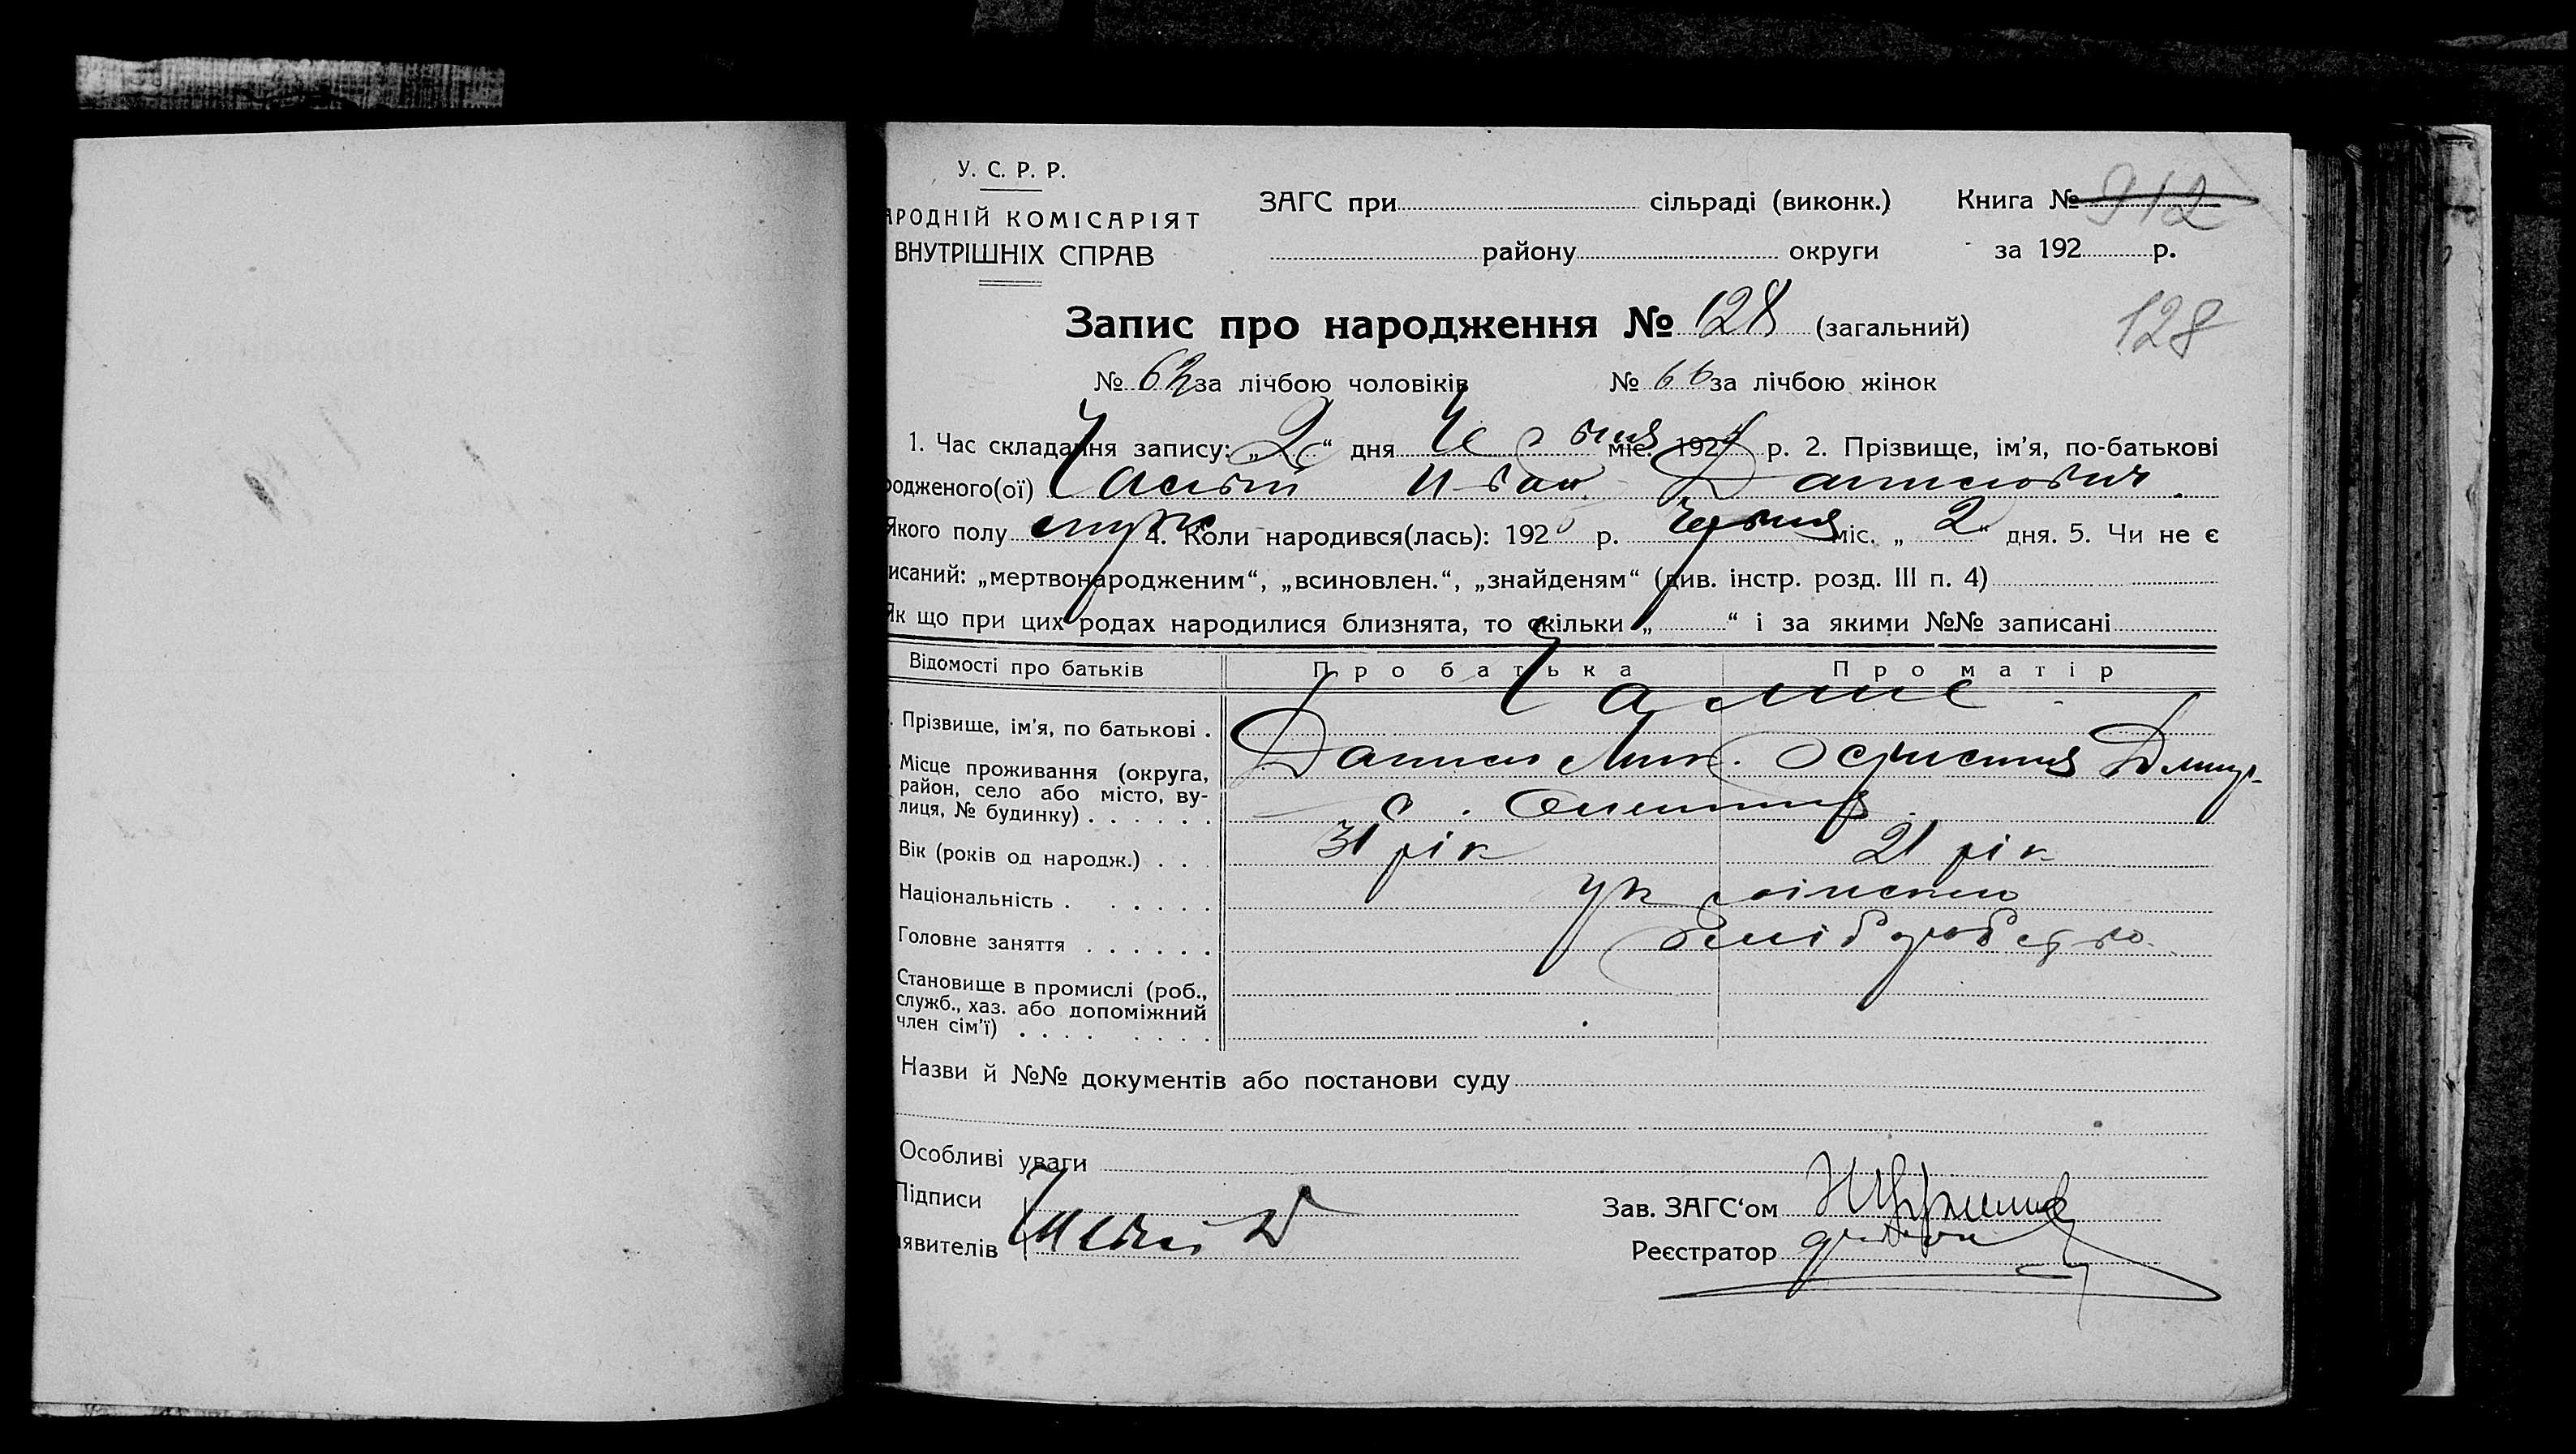 У. С. Р. Р.
АРОДНІЙ КОМІСАРІЯТ
ВНУТРІШНІХ СПРАВ
ЗАГС при сільраді (виконк.) Книга № 912
району округи за 192 р.
Запис про народження № 128 (загальний)
128
№ 62 за лічбою чоловіків № 66 за лічбою жінок
1. Час складання запису: „2“ дня міс. 192 р. 2. Прізвище, ім’я, по-батькові
родженого(ої) Иван Данилович.
Якого полу 4. Коли народився(лась): 192 р. Червня міс. „2“ дня. 5. Чи не є
исаний: „мертвонародженим“, „всиновлен.“, „знайденям“ (див. інстр. розд. III п. 4)
Як що при цих родах народилися близнята, то скільки „ “ і за якими №№ записані
Відомості про батьків Про батька Про матір
Прізвище, ім’я, по батькові .
Данило Мик.
Місце проживання (округа,
район, село або місто, ву-
лиця, № будинку) . . . . . . с.
Вік (років од народж.) . . . 31 рік 21 рік
Національність . . . . . .
Головне заняття . . . . . . Хліборобство.
Становище в промислі (роб.,
служб., хаз. або допоміжний
член сім’ї) . . . . . . . .
Назви й №№ документів або постанови суду
Особливі уваги
Підписи
аявителів
Зав. ЗАГС‘ом
Реєстратор